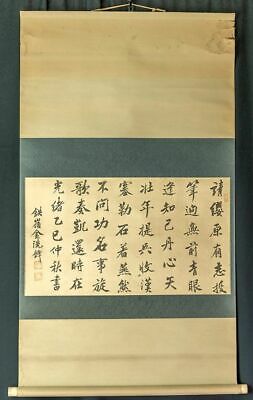 請纓原有志投
筆迥無前青眼
逢知己丹心矢
壯年提兵收漢
塞勒石著燕然
不問功名事旋
歌奏凱還時在
光緒乙巳仲秋書
鐵嶺